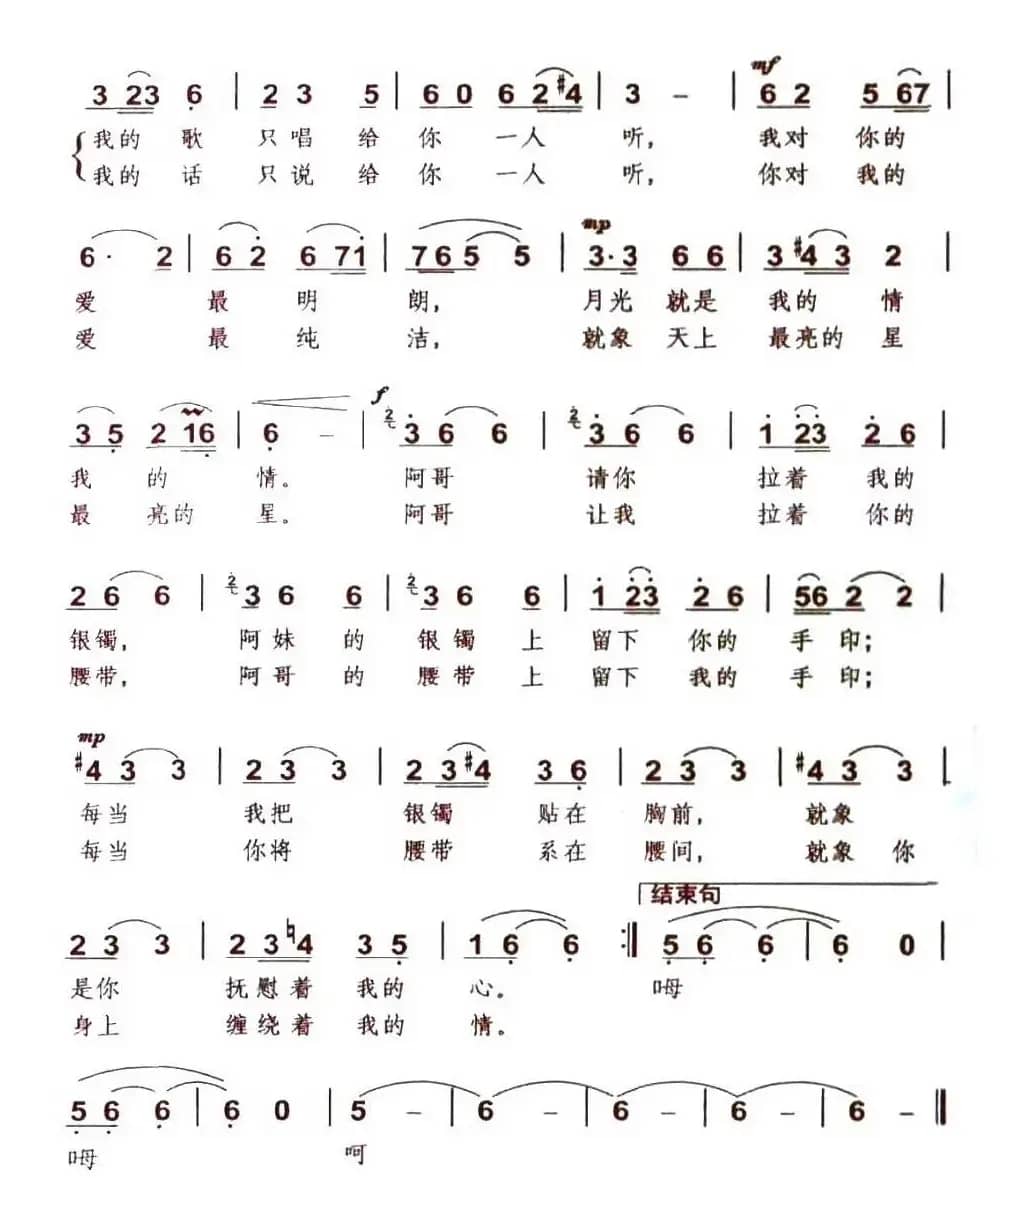 3 23 6 | 2 3 5 | 6 0 6 2#4 | 3 – | mf 6 2 5 67 |
我的 歌 只唱 给 你 一人 听, 我对 你的
我的 话 只说 给 你 一人 听, 你对 我的
6· 2 | 6 2 6 71 | 765 5 | mp 3·3 6 6 | 3 #4 3 2 |
爱 最 明 朗, 月光 就是 我的 情
爱 最 纯 洁, 就象 天上 最亮的 星
3 5 2 16 | 6 – | f 2 3 6 6 | 2 3 6 6 | 1 23 2 6 |
我 的 情。 阿哥 请你 拉着 我的
最 亮的 星。 阿哥 让我 拉着 你的
2 6 6 | 2 3 6 6 | 2 3 6 6 | 1 23 2 6 | 56 2 2 |
银镯, 阿妹 的 银镯 上 留下 你的 手 印;
腰带, 阿哥 的 腰带 上 留下 我的 手 印;
mp #4 3 3 | 2 3 3 | 2 3#4 3 6 | 2 3 3 | #4 3 3 |
每当 我把 银镯 贴在 胸前, 就象
每当 你将 腰带 系在 腰间, 就象 你
结束句
2 3 3 | 2 3♮4 3 5 | 1 6 6 :‖ 5 6 6 | 6 0 |
是你 抚慰着 我的 心。 呣
身上 缠绕着 我的 情。
5 6 6 | 6 0 | 5 – | 6 – | 6 – | 6 – | 6 – ‖
呣 呵